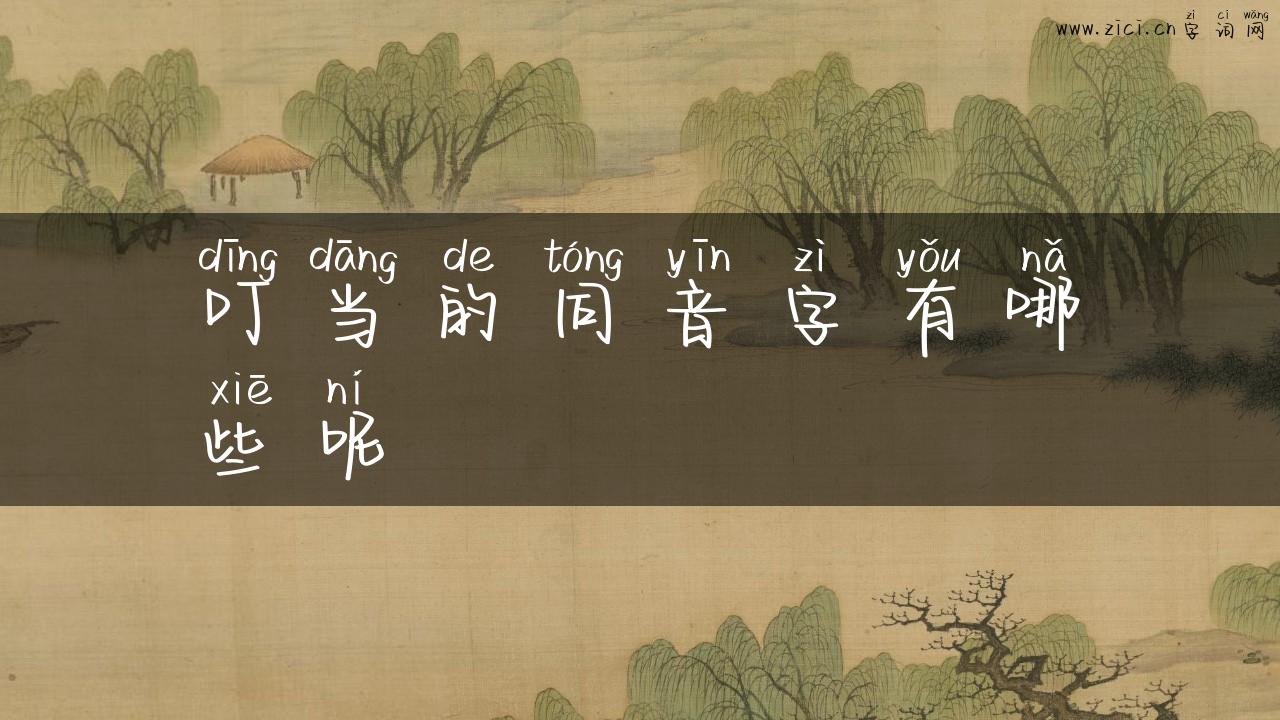 zì cí wǎng
www.zici.cn 字 词 网
dīng dāng de tóng yīn zì yǒu nǎ
叮 当 的 同 音 字 有 哪
xiē ní
些 呢